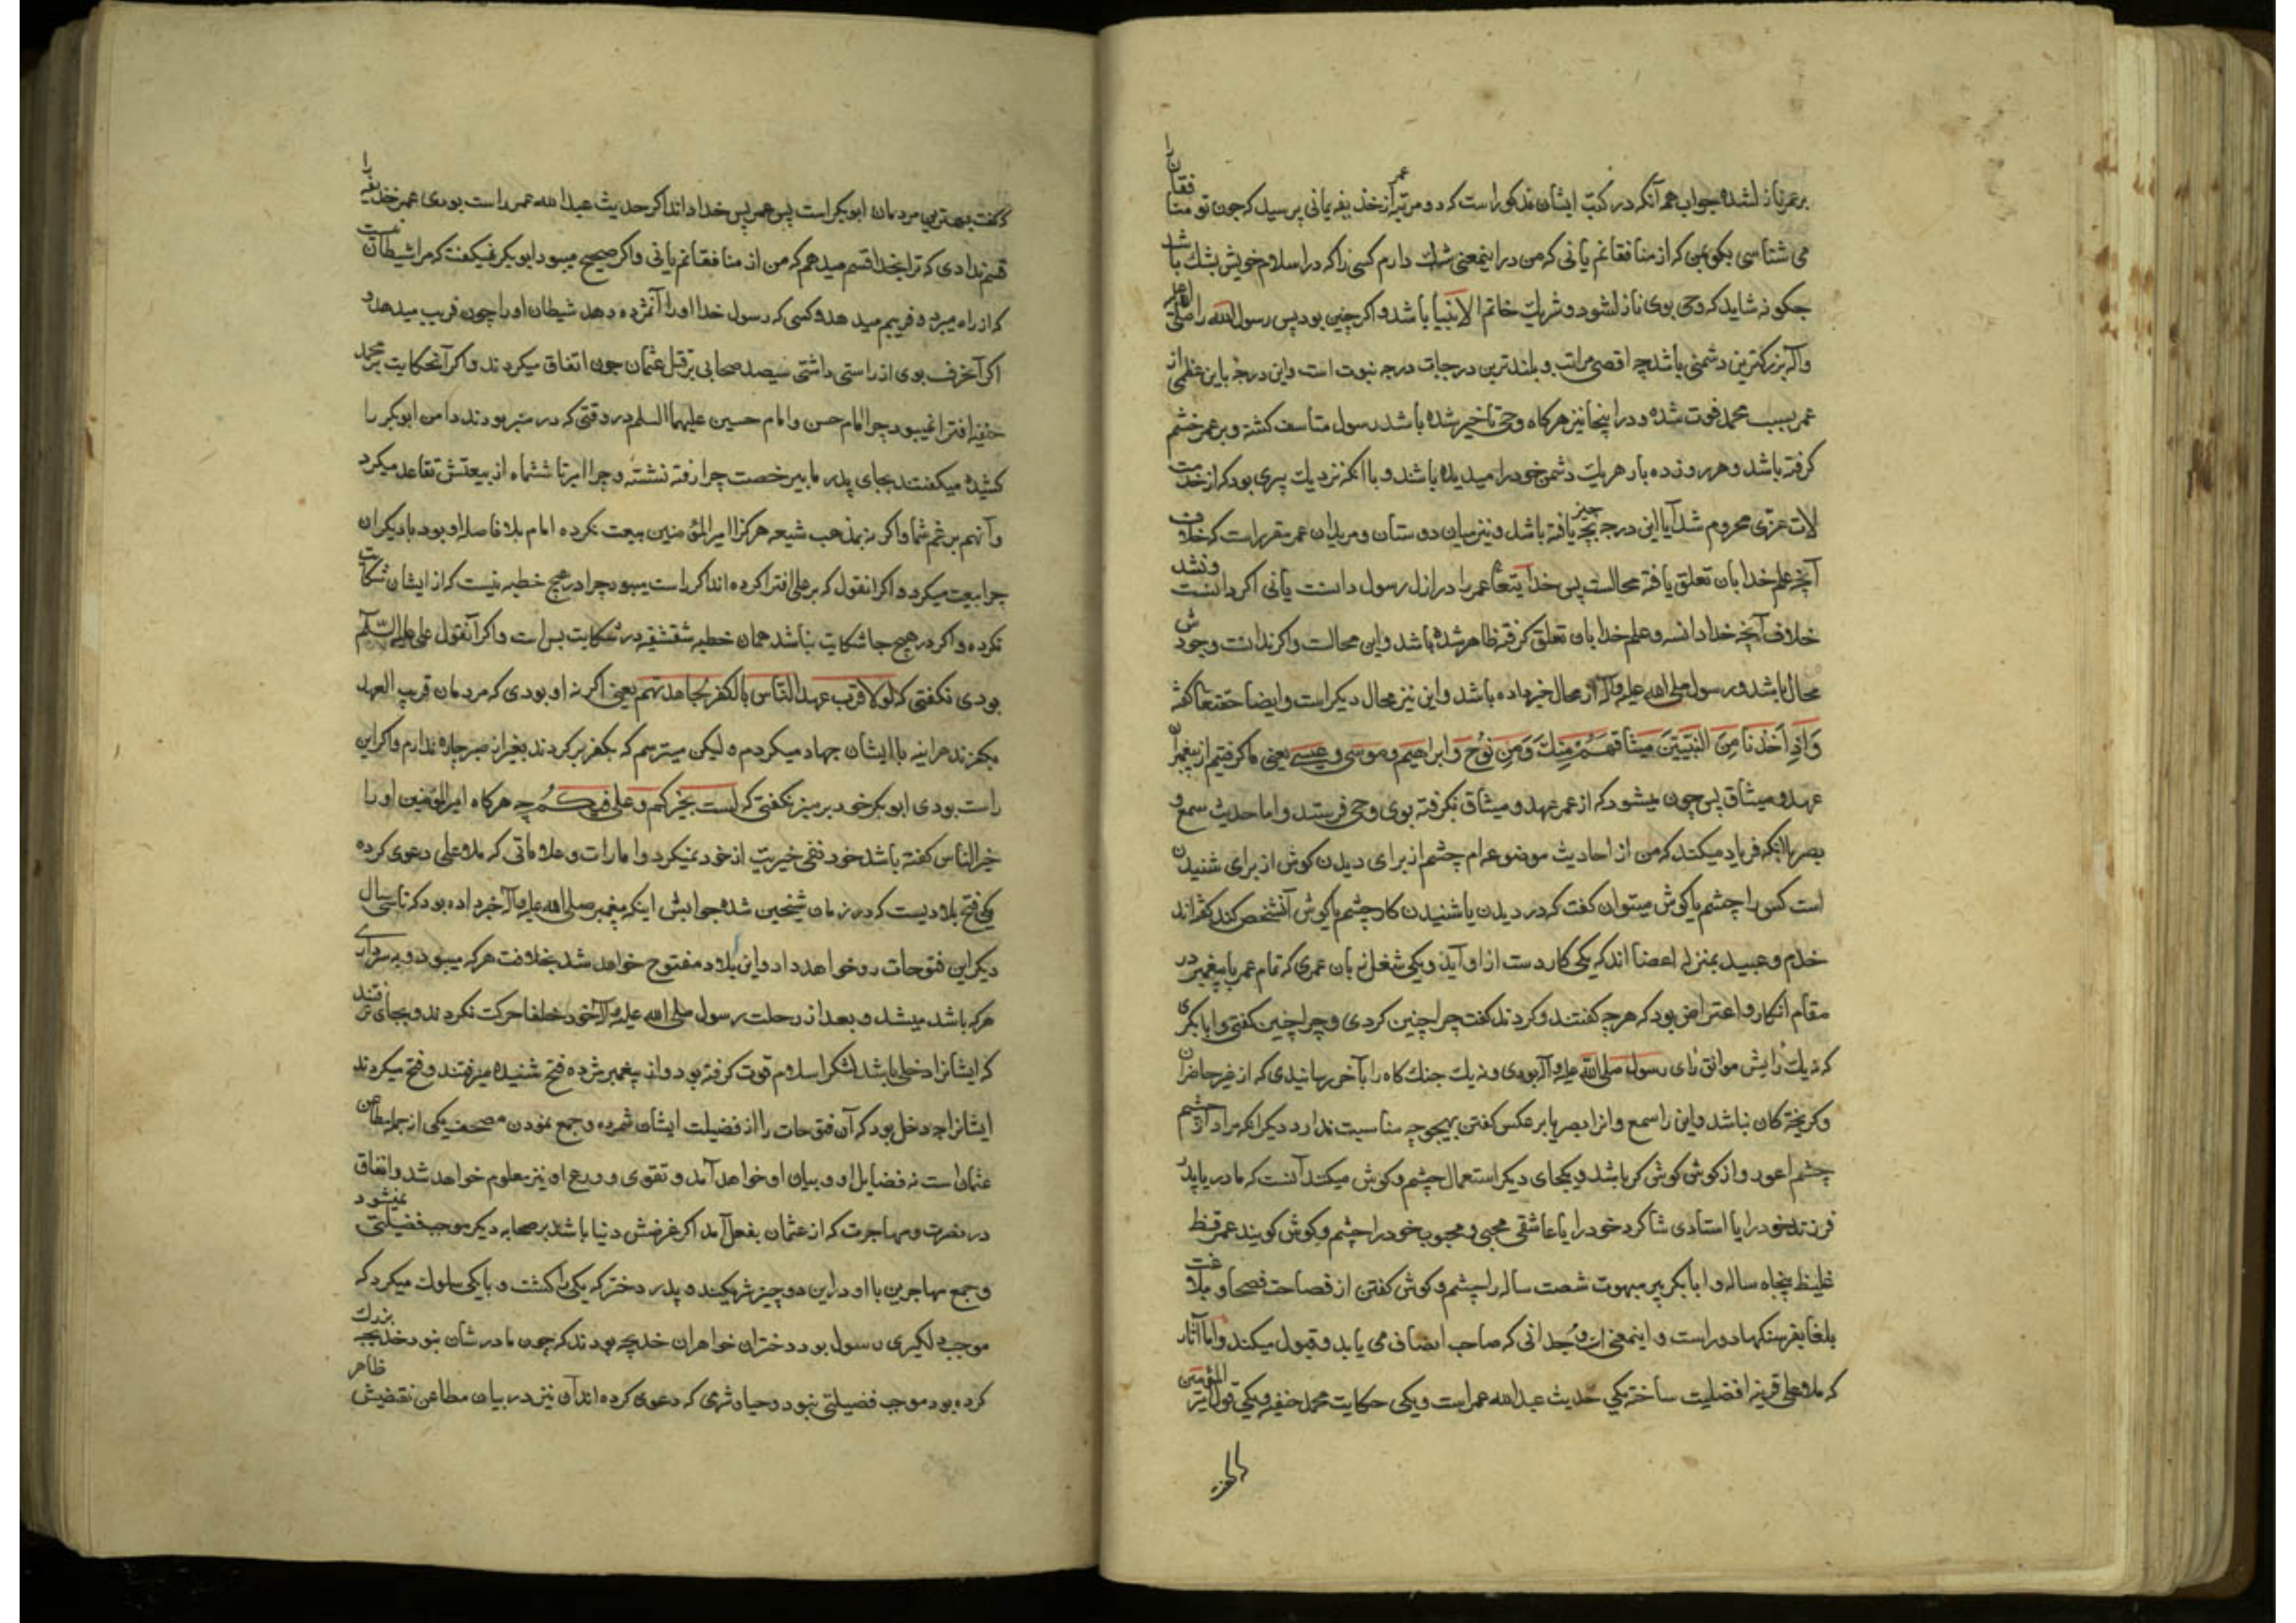 بر عمر نازل شده جواب هم آنکه در کتب ایشان مذکور است که دو مرتبه عمر از حذیفه یمانی پرسید که چون تو منافقان را
می شناسی بکوی من که از منافقانم یا نی که من در اینمعنی شک دارم کسی را که در اسلام خویش بشک باشد
چکونه شاید که وحی بوی نازل شود و شریک خاتم الانبیا باشد و اکر چنین بود پس رسول الله را صلی الله علیه
وآله بزرکترین دشمنی باشد چه اقصی مراتب و بلندترین درجات درجه نبوت است و این درجه باین عظمی از
عمر بسبب محمد فوت شده و در اینجا نیز هرکاه وحی تاخیر شده باشد رسول متاسف کشته و بر عمر خشم
کرفته باشد و هر روز ده بار هر یک دشمن خود را میدیده باشند و با آنکه نزدیک پیری بود که از خدمت
لات عزّی محروم شد آیا این درجه بچه چیز یافته باشد و نیز میان دوستان و مریدان عمر مقرر است که خلاف
آنچه علم خدا بان تعلق یافته محالست پس خدایتعا عمر را در ازل رسول دانست یا نی اکر دانست و نشد
خلاف آنچه خدا دانسته و علم خدا بان تعلق کرفته ظاهر شده باشد و این محالست و اکر ندانست وجودش
محال باشد و رسول صلی الله علیه وآله از محال خبر داده باشد و این نیز محال دیکر است و ایضا حقتعا کفته
وَاِذ اَخَذنَا مِنَ النَّبِیّینَ میثاقهُم وَمِنكَ وَمِن نوُح وَابراهیم وموسی وعیسی یعنی ما کرفتیم از پیغمبران
عهد و میثاق پس چون میشود که از عمر عهد و میثاق نکرفته بوی وحی فرستند و اما حدیث سمع و
بصر با آنکه فریاد میکند که من از احادیث موضوعه ام چشم از برای دیدن کوش از برای شنیدن
است کس را چشم یا کوش میتوان کفت که در دیدن یا شنیدن کار چشم یا کوش آنشخص کند کفته اند
خدم و عبید بمنزله اعضا اند که یکی کار دست از او آید و یکی شغل زبان عمری که تمام عمر با پیغمبر در
مقام انکار و اعتراض بود که هرچه کفتند و کردند کفت چرا چنین کردی و چرا چنین کفتی و ابابکری
که نه یک رایش موافق رای رسول صلی الله علیه وآله بودی و نه یک جنک کاه را بآخر رسانیدی که از غیر حاضران
و کریخته کان نباشد و این را سمع و انرا بصر یا بر عکس کفتن بهیچوجه مناسبت ندارد دیکر آنکه مراد از چشم
چشم اعور و از کوش کوش کر باشد و یکجای دیکر استعمال چشم و کوش میکند آنست که مادر یا پدر
فرزند خود را یا استادی شاکرد خود را یا عاشقی محبی و محبوب خود را چشم و کوش کویند عمر فظ
غلیظ پنجاه ساله و ابابکر پیر مبهوت شصت ساله را چشم و کوش کفتن از فصاحت فصحا و بلاغت
بلغا بفرسنکها دور است و اینمعنی امر وجدانی که صاحب انصاف می یابد و قبول میکند و اما آثار
که ملا علی قرینه افضلیت ساخته یکی حدیث عبدالله عمر است و یکی حکایت محمد حنفیه و یکی قول امیر المؤمنین
که کفت بهترین مردمان ابوبکر است پس عمر پس خدا داند اکر حدیث عبدالله عمر راست بودی عمر حذیفه را
قسم ندادی که ترا بخدا قسم میدهم که من از منافقانم یا نی و اکر صحیح میبود ابوبکر نمیکفت که مرا شیطانست
که از راه میبرد و فریبم میدهد و کسی که رسول خدا او را آنمژده دهد شیطان او را چون فریب میدهد و
اکر آنحرف بوی از راستی داشتی سیصد صحابی بر قتل عثمان چون اتفاق میکردند و اکر آنحکایت بر محمد
حنفیه افترا نمیبود چرا امام حسن و امام حسین علیهما السلم در وقتی که در منبر بودند دامن ابوبکر را
کشیده میکفتند بجای پدر ما بیرخصت چرا رفته نشسته و چرا امیر تا ششماه از بیعتش تقاعد میکرد
و آنهم بزعم شما و اکر نه بمذهب شیعه هرکز امیرالمؤمنین بیعت نکرده امام بلا فاصله او بود با دیکران
چرا بیعت میکرد و اکر انقول که بر علی افترا کرده اند اکر راست میبود چرا در هیچ خطبه نیست که از ایشان شکایت
نکرده و اکر در هیچ جا شکایت نباشد همان خطبه شقشقیه در شکایت بس است و اکر آنقول علی علیه السّلم
بودی نکفتی که لولا قرب عهد النّاس بالکفر لجاهدتهم یعنی اکر نه او بودی که مردمان قریب العهد
بکفرند هراینه با ایشان جهاد میکردم و لیکن میترسم که بکفر برکردند بغیر از صبر چاره ندارم و اکر این
راست بودی ابوبکر خود بر منبر نکفتی که لست بخیرکم و علی فیکُم چه هرکاه امیرالمؤمنین او را
خیرالناس کفته باشد خود نفی خیریت از خود نمیکرد و امارات و علاماتی که ملا علی دعوی کرده
یکی فتح بلادیست که در زمان شیخین شده جوابش اینکه پیغمبر صلی الله علیه وآله خبر داده بود که تا سی سال
دیکر این فتوحات رو خواهد داد و این بلاد مفتوح خواهد شد بخلافت هرکه میبود و به سرداری
هرکه باشد میشد و بعد از رحلت رسول صلی الله علیه وآله خود خلفا حرکت نکردند و بجای نرفتند
که ایشانرا دخلی باشد لشکر اسلام قوت کرفته بود و از پیغمبر مژده فتح شنیده میرفتند و فتح میکردند
ایشانرا چه دخل بود که آن فتوحات را از فضیلت ایشان شمرده و جمع نمودن مصحف یکی از جمله مطاعن
عثمان است نه فضایل او و بیان او خواهد آمد و تقوی و ورع او نیز معلوم خواهد شد و انفاق
در نصرت و مهاجرت که از عثمان بفعل آمد اکر غرضش دنیا باشد بر صحابه دیکر موجب فضیلتی نمیشود
و جمع مهاجرین با او در این دو چیز شریکند و پدر دختر که یکی را کشت و با یکی سلوک میکرد که
موجب دلکیری رسول بود دختران خواهران خدیجه بودند که چون مادرشان نبود خدیجه بزرک
کرده بود موجب فضیلتی نبود و حیا و شرمی که دعوی کرده اند آن نیز در بیان مطاعن نقیضش ظاهر